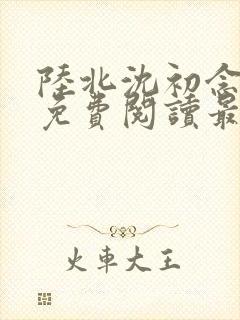 陸北沈初念
免費閱讀最
火車大王